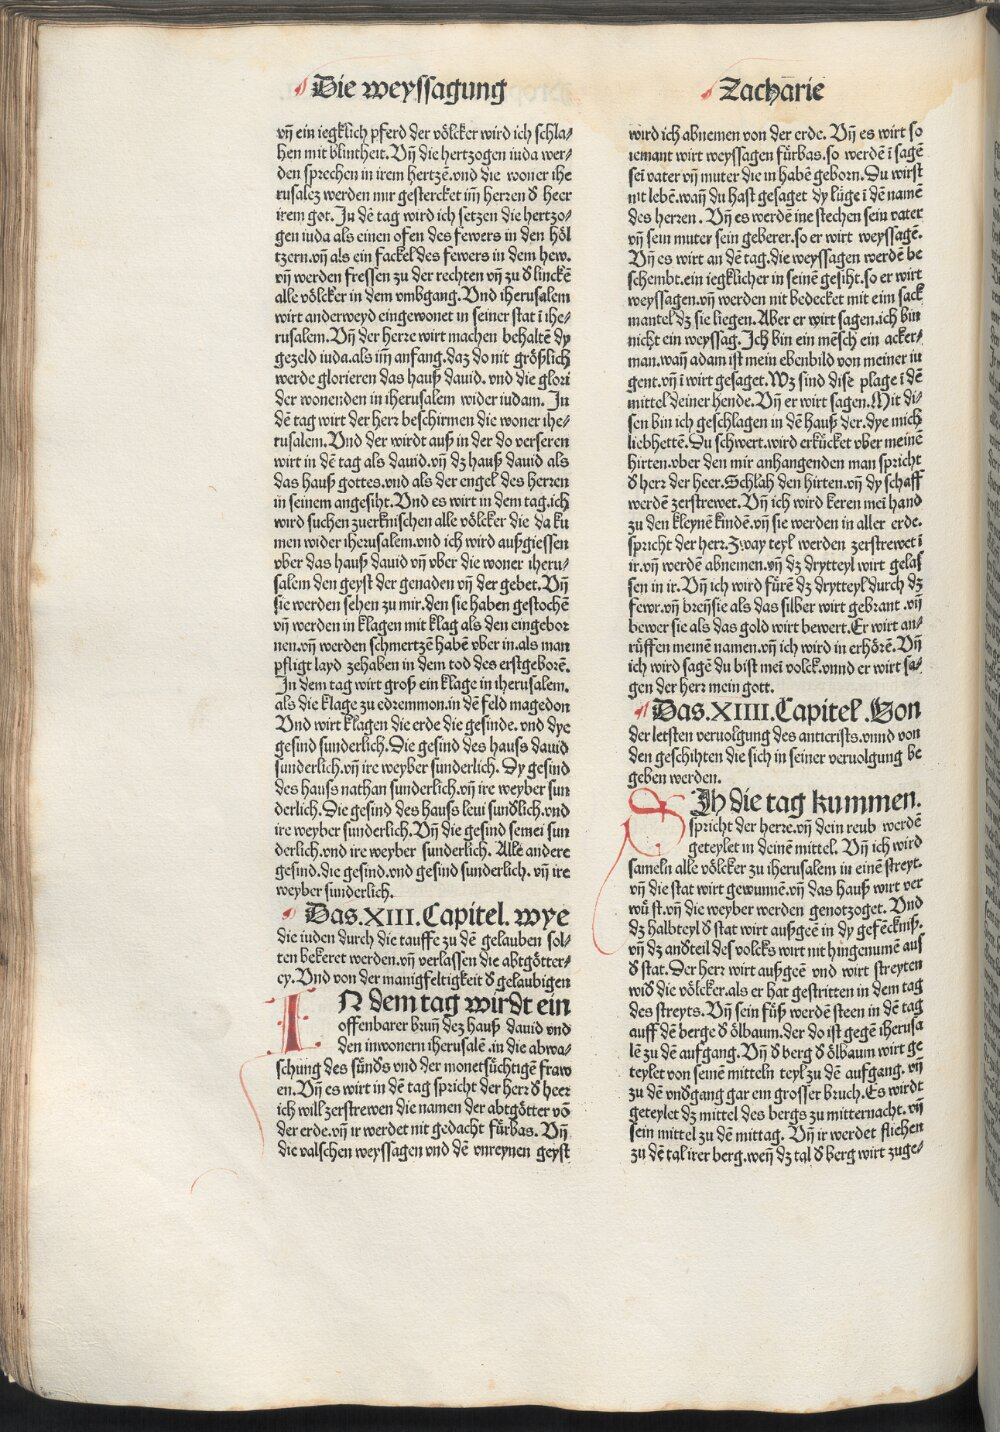 Die weyssagung
Zacharie
vn̄ ein iegklich pferd der völcker wird ich schla-
hen mit blintheit. Vn̄ die hertzogen iuda wer-
den sprechen in irem hertzē.vnd die woner ihe
rusalez werden mir gestercket im̄ herren d̄ heer
irem got. In dē tag wird ich setzen die hertzo-
gen iuda als einen ofen des fewers in den höl
tzern.vn̄ als ein fackel des fewers in dem hew.
vn̄ werden fressen zu der rechten vn̄ zu d̄ linckē
alle völcker in dem vmbgang. Vnd iherusalem
wirt anderweyd eingewonet in seiner stat ī ihe-
rusalem. Vn̄ der herre wirt machen behaltē dy
gezeld iuda.als im̄ anfang.daz do nit größlich
werde glorieren das hauß dauid. vnd die glori
der wonenden in iherusalem wider iudam. In
dē tag wirt der herr beschirmen die woner ihe-
rusalem. Vnd der wirdt auß in der do verseren
wirt in dē tag als dauid.vn̄ dz hauß dauid als
das hauß gottes.vnd als der engel des herren
in seinem angesiht. Vnd es wirt in dem tag.ich
wird suchen zuerknischen alle völcker die da ku
men wider iherusalem.vnd ich wird außgiessen
vber das hauß dauid vn̄ vber die woner iheru-
salem den geyst der genaden vn̄ der gebet. Vn̄
sie werden sehen zu mir.den sie haben gestochē
vn̄ werden in klagen mit klag als den eingebor
nen.vn̄ werden schmertzē habē vber in.als man
pfligt layd zehaben in dem tod des erstgeborē.
In dem tag wirt groß ein klage in iherusalem.
als die klage zu edremmon.in dē feld magedon
Vnd wirt klagen die erde die gesinde. vnd dye
gesind sunderlich. Die gesind des hauss dauid
sunderlich.vn̄ ire weyber sunderlich. Dy gesind
des hauss nathan sunderlich.vn̄ ire weyber sun
derlich. Die gesind des hauss leui sund̄lich.vnd
ire weyber sunderlich. Vn̄ die gesind semei sun
derlich.vnd ire weyber sunderlich. Alle andere
gesind.die gesind.vnd gesind sunderlich. vn̄ ire
weyber sunderlich.
Das.XIII.Capitel. wye
die iuden durch die tauffe zu dē gelauben sol-
ten bekeret werden.vn̄ verlassen die abtgötter-
cy. Vnd von der manigfeltigkeit d̄ gelaubigen
IN dem tag wirdt ein
offenbarer brun̄ dez hauß dauid vnd
den inwonern iherusalē.in die abwa-
schung des sünd̄s vnd der monetsüchtigē fraw
en. Vn̄ es wirt in dē tag spricht der herr d̄ heer
ich will zerstrewen die namen der abtgötter vō
der erde.vn̄ ir werdet nit gedacht fürbas. Vn̄
die valschen weyssagen vnd dē vnreynen geyst
wird ich abnemen von der erde. Vn̄ es wirt so
iemant wirt weyssagen fürbas.so werdē ī sagē
sei vater vn̄ muter die in habē geborn. Du wirst
nit lebē.wan̄ du hast gesaget dy lüge ī dē namē
des herren. Vn̄ es werdē ine stechen sein vater
vn̄ sein muter sein geberer.so er wirt weyssagē.
Vn̄ es wirt an dē tag.die weyssagen werdē be
schembt.ein iegklicher in seinē gesiht.so er wirt
weyssagen.vn̄ werden nit bedecket mit eim sack
mantel dz sie liegen. Aber er wirt sagen.ich bin
nicht ein weyssag. Ich bin ein mēsch ein acker-
man.wan̄ adam ist mein ebenbild von meiner iu
gent.vn̄ ī wirt gesaget. Wz sind dise plage ī dē
mittel deiner hende. Vn̄ er wirt sagen. Mit di-
sen bin ich geschlagen in dē hauß der.dye mich
liebhettē. Du schwert.wird erkücket vber meinē
hirten.vber den mir anhangenden man spricht
d̄ herr der heer. Schlah den hirten.vn̄ dy schaff
werdē zerstrewet. Vn̄ ich wird keren mei hand
zu den kleynē kindē.vn̄ sie werden in aller erde.
spricht der herr. Zway teyl werden zerstrewet ī
ir.vn̄ werdē abnemen.vn̄ dz drytteyl wirt gelas
sen in ir. Vn̄ ich wird fürē dz drytteyl durch dz
fewr.vn̄ bren̄ sie als das silber wirt gebrant.vn̄
bewer sie als das gold wirt bewert. Er wirt an-
rüffen meinē namen.vn̄ ich wird in erhörē. Vn̄
ich wird sagē du bist mei volck.vnnd er wirt sa-
gen der herr mein gott.
Das.XIIII.Capitel.Von
der letsten veruolgung des anticrists.vnnd von
den geschihten die sich in seiner veruolgung be
geben werden.
SIh die tag kummen.
spricht der herre.vn̄ dein reub werdē
geteylet in deinē mittel. Vn̄ ich wird
sameln alle völcker zu iherusalem in einē streyt.
vn̄ die stat wirt gewunnē.vn̄ das hauß wirt ver
wüst.vn̄ die weyber werden genotzoget. Vnd
dz halbteyl d̄ stat wirt außgeē in dy gefēckniß.
vn̄ dz and̄teil des volcks wirt nit hingenumē aus
d̄ stat. Der herr wirt außgeē vnd wirt streyten
wid̄ die völcker.als er hat gestritten in dem tag
des streyts. Vn̄ sein füß werdē steen in dē tag
auff dē berge d̄ ölbaum.der do ist gegē iherusa
lē zu dē aufgang. Vn̄ d̄ berg d̄ ölbaum wirt ge
teylet von seinē mitteln teyl zu dē aufgang. vn̄
zu dē vnd̄gang gar ein grosser bruch. Es wirdt
geteylet dz mittel des bergs zu mitternacht.vn̄
sein mittel zu dē mittag. Vn̄ ir werdet fliehen
zu dē tal irer berg.wen̄ dz tal d̄ berg wirt zuge-